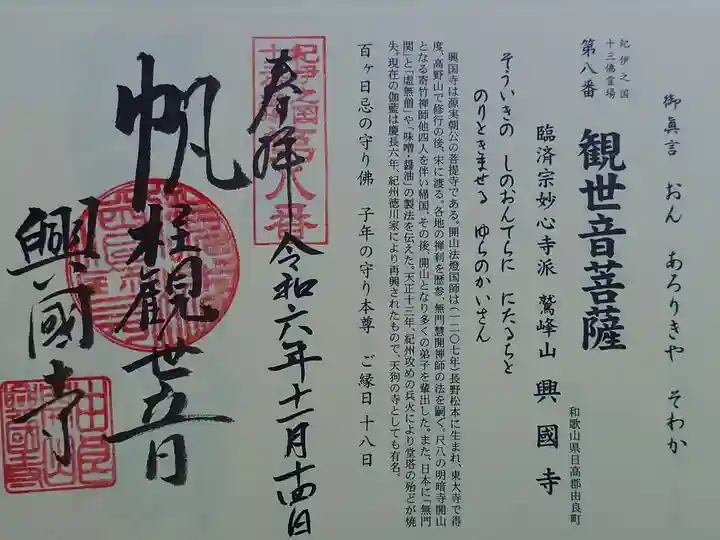 御真言　おん　あろりきや　そわか
紀伊之国
十三佛霊場
第八番
観世音菩薩
臨済宗妙心寺派　鷲峰山　興國寺
和歌山県日高郡由良町
そういきの　しのおんてらに　にたるちと
のりときませる　ゆらのかいさん
興国寺は源実朝公の菩提寺である。開山法燈国師は（一二〇七年）長野松本に生まれ、東大寺で得
度、高野山で修行の後、宋に渡る。各地の禅刹を歴参、無門慧開禅師の法を嗣ぐ。尺八の明暗寺開山
となる寄竹禅師他四人を伴い帰国、その後、開山となり多くの弟子を輩出した。また、日本に「無門
関」と「虚無僧」や「味噌・醤油」の製法を伝えた。天正十三年、紀州攻めの兵火により堂塔の殆どが焼
失。現在の伽藍は慶長六年、紀州徳川家により再興されたもので、天狗の寺としても有名。
百ヶ日忌の守り佛　子年の守り本尊　ご縁日十八日
紀伊之国
第八番
奉拝　令和六年十一月十四日
帆柱観世音
興國寺